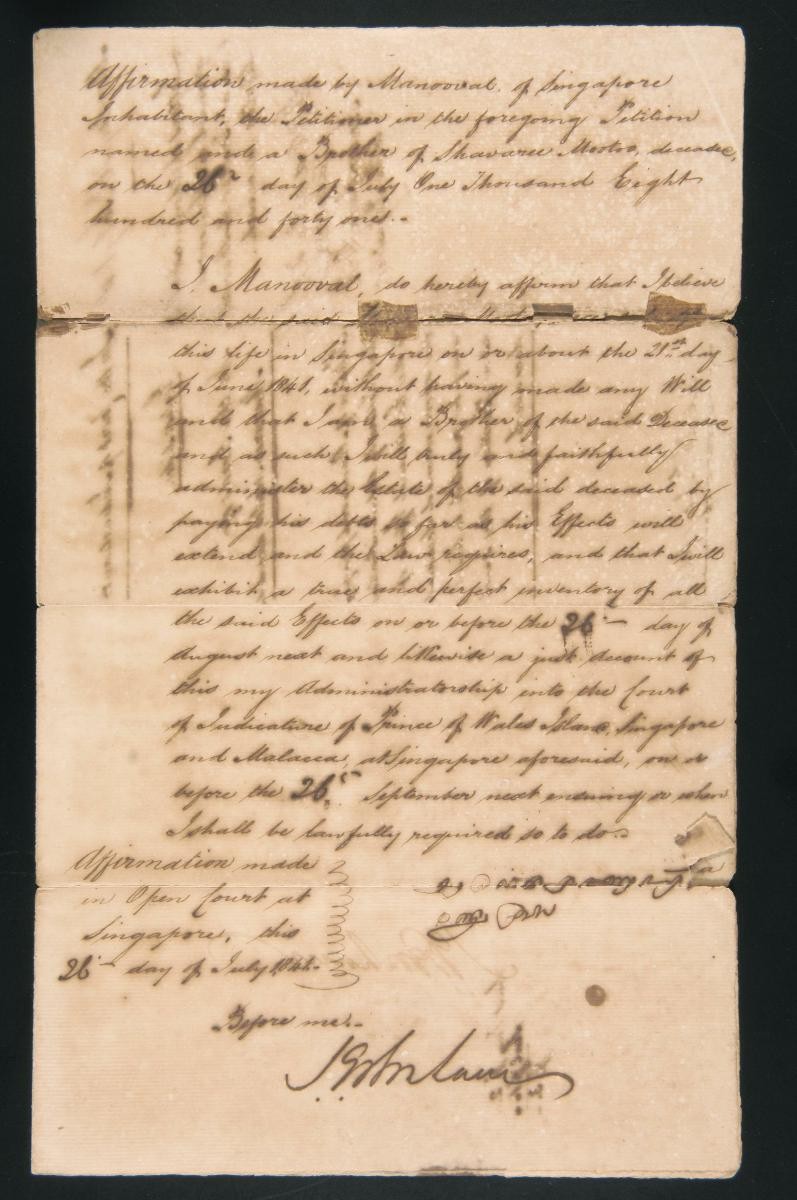 Affirmation made by Manooval of Singapore
Inhabitant, the Petitioner in the foregoing Petition
named and a Brother of Shavaree Mootoo, deceased,
on the 26th day of July One Thousand Eight
hundred and forty one.-
I, Manooval, do hereby affirm that I believe
that the said
this life in Singapore on or about the 21st day
of June 1841, without having made any Will
and that I am a Brother of the said Deceased
and as such I will truly and faithfully
administer the Estate of the said deceased by
paying his debts so far as his Effects will
extend and the Law requires, and that I will
exhibit a true and perfect inventory of all
the said Effects on or before the 26 - day of
August next and likewise a just account of
this my Administratorship into the Court
of Judicature of Prince of Wales Island, Singapore
and Malacca, at Singapore aforesaid, on or
before the 26th September next ensuing or when
I shall be lawfully required so to do.-
Affirmation made
in Open Court at
Singapore, this
26 - day of July 1841.-
Before me.-